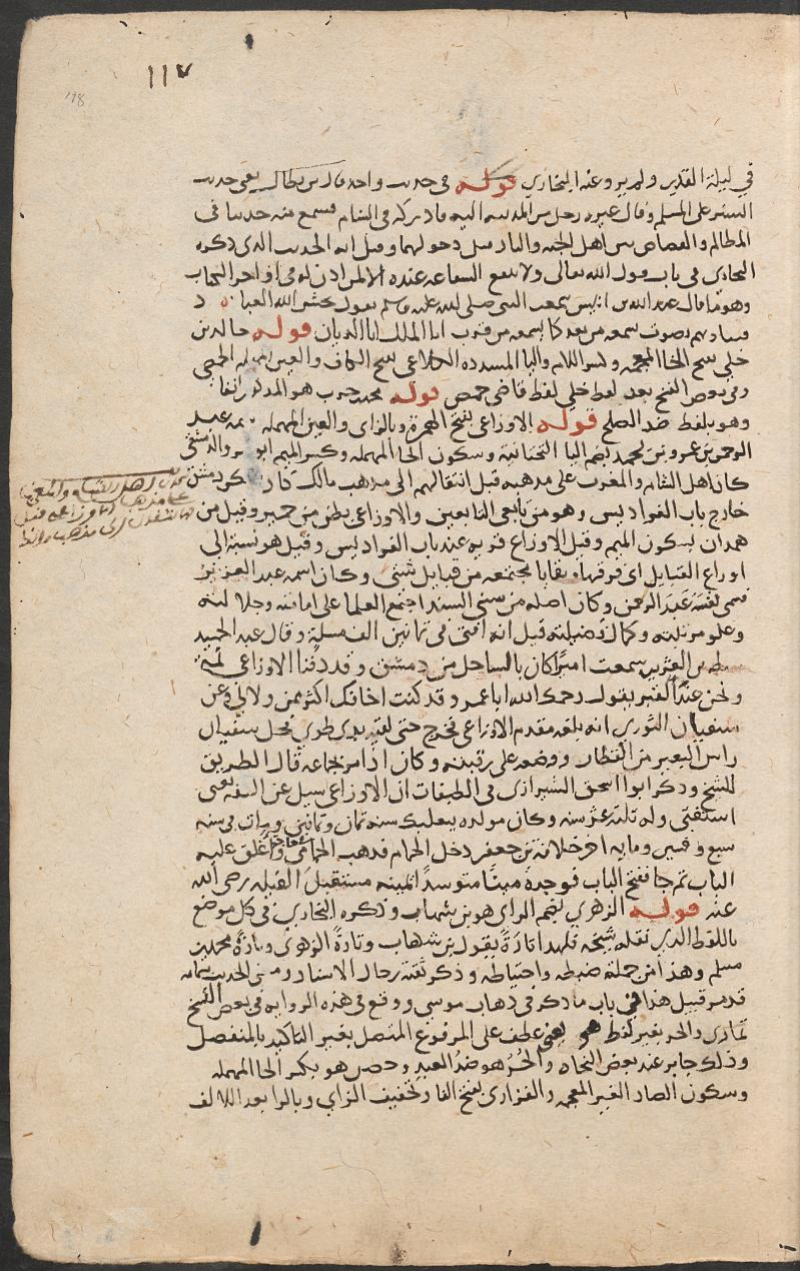 ١١٧
118
في ليلة القدر ولم يرو عنه البخاري قوله في حديث واحد قال بن بطال يعني حديث
الستر على المسلم وقال غيره رجل من المدينة اليه فادركه في الشام فسمع منه حديثا في
المظالم والقصاص بين اهل الجنة والنار قبل دخولهما وقيل انه الحديث الذي ذكره
البخاري في باب قول الله تعالى ولا تنفع الشفاعة عنده الا لمن اذن له في اواخر الكتاب
وهو ما قال عبد الله بن انيس سمعت النبي صلى الله عليه وسلم يقول يحشر الله العباد
فيناديهم بصوت يسمعه من بعد كما يسمعه من قرب انا الملك انا الديان قوله خالد بن
خلي بفتح الخا المعجمة وكسر اللام واليا المشدده الكلاعي بفتح الكاف والعين المهمله الحمصي
وفي بعض النسخ بعد لفظ خلي لفظ قاضي حمص قوله محمد بن حرب هو المذكور انفا
وهو بلفظ ضد الصلح قوله الاوزاعي بفتح الهمزة وبالزاي والعين المهمله عبد
الرحمن بن عمرو بن يحمد بضم اليا التحتانية وسكون الحا المهمله وكسر الميم ابو عمرو الدمشقي
كان اهل الشام والمغرب على مذهبه قبل انتقالهم الى مذهب مالك كان يسكن دمشق
خارج باب الفراديس وهو من تابعي التابعين والاوزاعي بطن من حمير وقيل من
همدان بسكون الميم وقيل الاوزاع قريه عند باب الفراديس وقيل هو نسبة الى
اوزاع القبايل اي فرقها وبقايا مجتمعه من قبايل شتى وكان اسمه عبد العزيز
فسمى نفسه عبد الرحمن وكان اصله من سبي السند اجتمع العلما على امامته وجلالته
وعلو مرتبته وكمال فضيلته قيل انه افتى في ثمانين الف مسئلة وقال عبد الحميد
بن العشرين سمعت اميرا كان بالساحل من دمشق وقد دفنا الاوزاعي
ونحن عند القبر يقول رحمك الله ابا عمرو قد كنت اخافك اكثر ممن ولاني وعن
سفيان الثوري انه بلغه مقدم الاوزاعي فخرج حتى لقيه بذي طوى فحل سفيان
راس البعير من القطار ووضعه على رقبته وكان اذا مر بجماعه قال الطريق
للشيخ وذكر ابو اسحق الشيرازي في الطبقات ان الاوزاعي سيل عن الفقه يعني
استفتي وله ثلثه عشر سنه وكان مولده ببعلبك سنه ثمان وثمانين ومات في سنه
سبع وخمسين ومايه اخر خلافة بن جعفر دخل الحمام فذهب الحمامي في حاجة واغلق عليه
الباب ثم جا ففتح الباب فوجده ميتا متوسدا يمينه مستقبل القبله رضي الله
عنه قوله الزهري بضم الزاي هو بن شهاب وذكره البخاري في كل موضع
باللفظ الذي نقله شيخه فلهذا تارة يقول بن شهاب وتارة الزهري وتارة محمد بن
مسلم وهذا من جملة ضبطه واحتياطه وذكر بقية رجال الاسناد ومتن الحديث بتمامه
قد مر قبيل هذا في باب ما ذكر في ذهاب موسى ووقع في هذه الروايه في بعض النسخ
تمارى والحر بغير لفظ هو يعني عطف على المرفوع المتصل بغير التاكيد بالمنفصل
وذلك جايز عند بعض النحاه والحر هو ضد العبد وحصن هو بكسر الحا المهمله
وسكون الصاد الغير المعجمه والفزاري بفتح الفا وتخفيف الزاي وبالرا بعد الالف
اهل الشام والمغرب
على مذهب الاوزاعي قبل
انتقالهم الى مذهب مالك